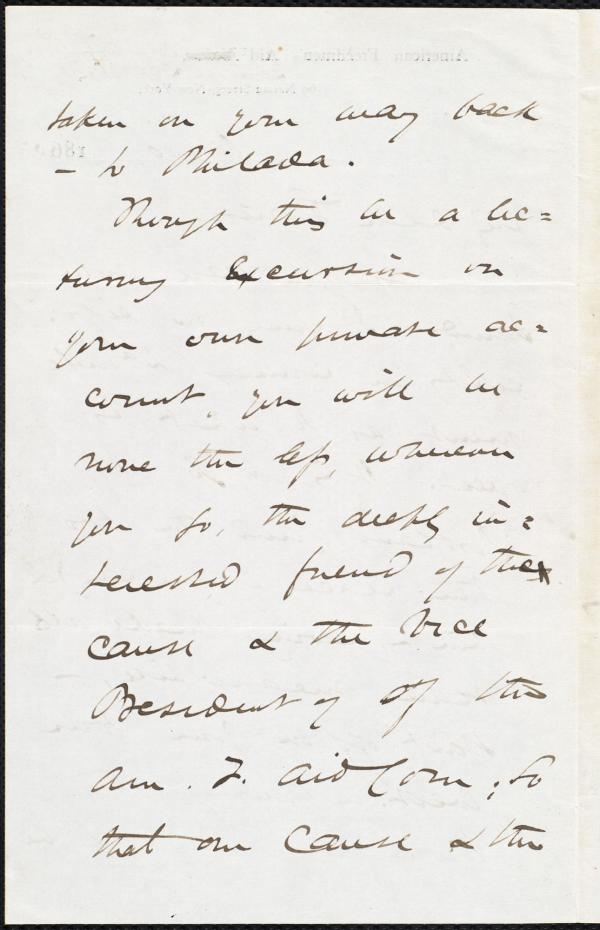 taken on your way back
– to Philada.
Though this be a lec=
turing Excursion on
your own private ac=
count, you will be
none the less, wherever
you go, the deeply in=
terested friend of the
cause & the Vice
President of of the
Am. F. Aid Com; so
that our cause & the